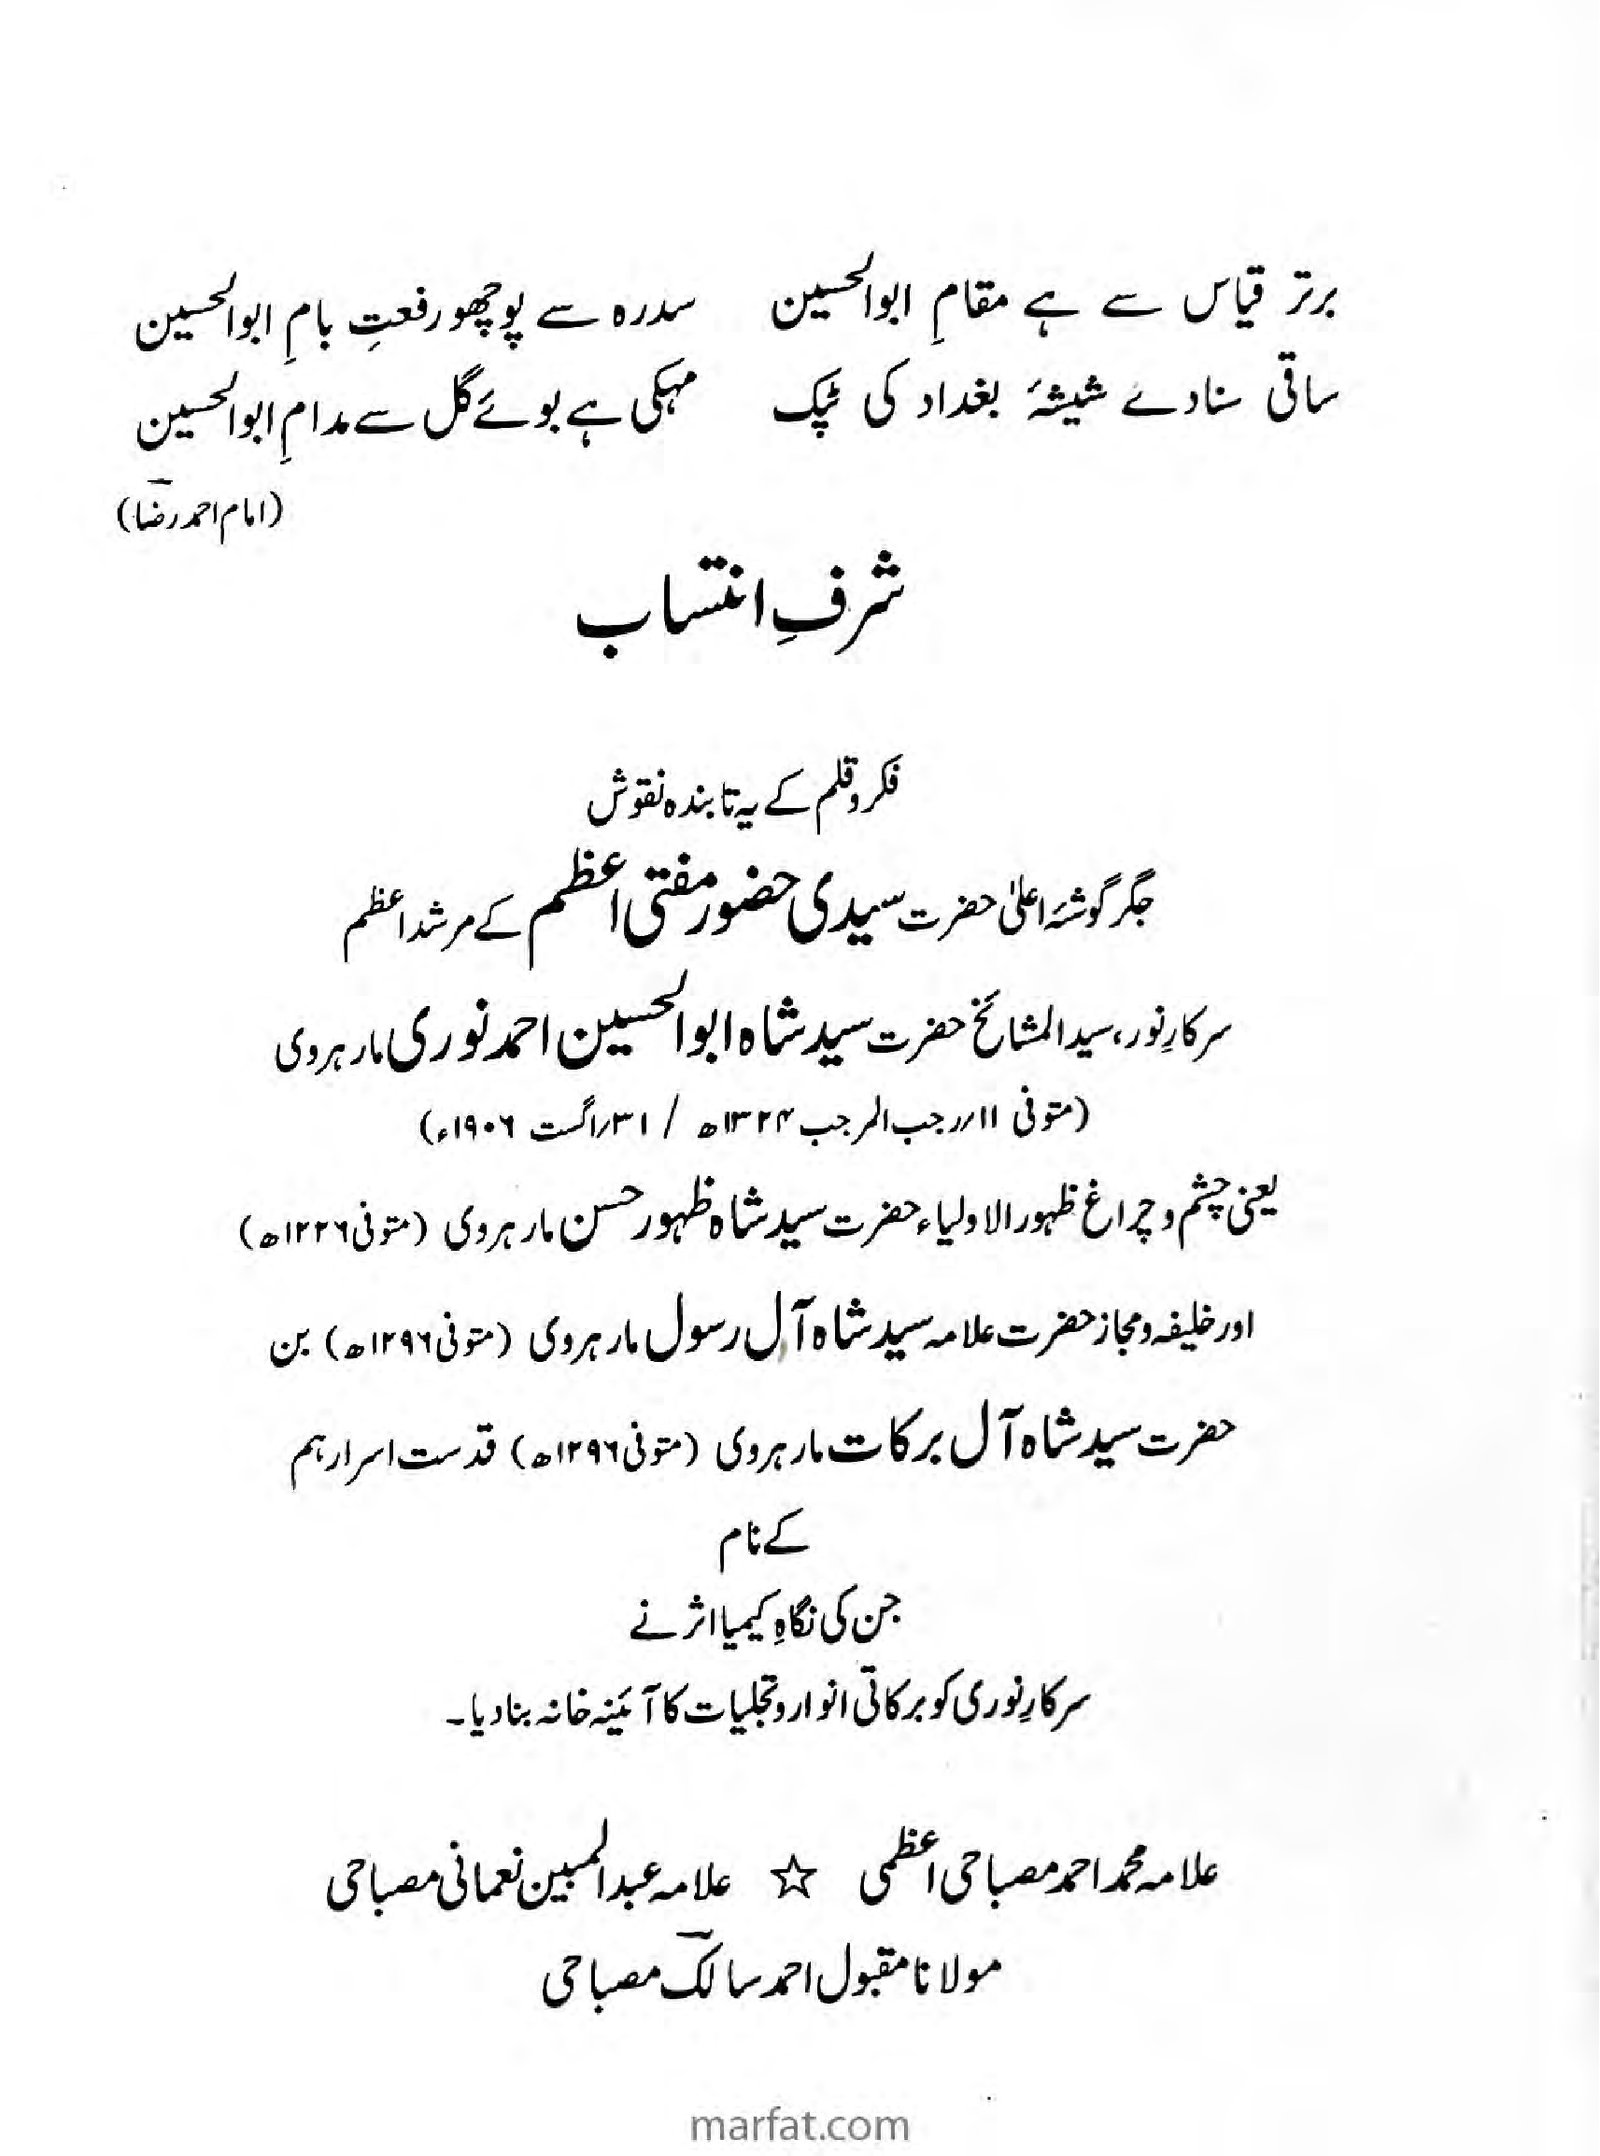 برتر قیاس سے ہے مقامِ ابوالحسین سدرہ سے پوچھو رفعتِ بامِ ابوالحسین
ساقی سنادے شیشۂ بغداد کی ٹپک مہکی ہے بوئے گل سے مدامِ ابوالحسین
(امام احمد رضؔا)
شرفِ انتساب
فکر و قلم کے یہ تابندہ نقوش
جگر گوشۂ اعلیٰ حضرت سیدی حضور مفتی اعظم کے مرشد اعظم
سرکارِ نور، سید المشائخ حضرت سید شاہ ابوالحسین احمد نوری مارہروی
(متوفی ۱۱؍رجب المرجب ۱۳۲۴ھ / ۳۱؍اگست ۱۹۰۶ء)
یعنی چشم و چراغ ظہور الاولیاء حضرت سید شاہ ظہور حسن مارہروی (متوفی ۱۲۲۶ھ)
اور خلیفہ و مجاز حضرت علامہ سید شاہ آل رسول مارہروی (متوفی ۱۲۹۶ھ) بن
حضرت سید شاہ آل برکات مارہروی (متوفی ۱۲۹۶ھ) قدست اسرارہم
کے نام
جن کی نگاہِ کیمیا اثر نے
سرکارِ نوری کو برکاتی انوار و تجلیات کا آئینہ خانہ بنا دیا۔
علامہ محمد احمد مصباحی اعظمی ☆ علامہ عبدالمبین نعمانی مصباحی
مولانا مقبول احمد سالکؔ مصباحی
marfat.com